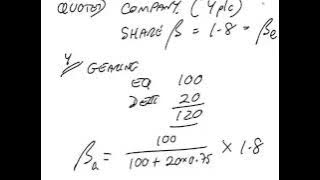 QUOTED COMPANY (Y plc)
SHARE β = 1.8 = βe
Y/ GEARING
EQ 100
DEBT 20
120
βa = 100 / 100 + 20 x 0.75 x 1.8